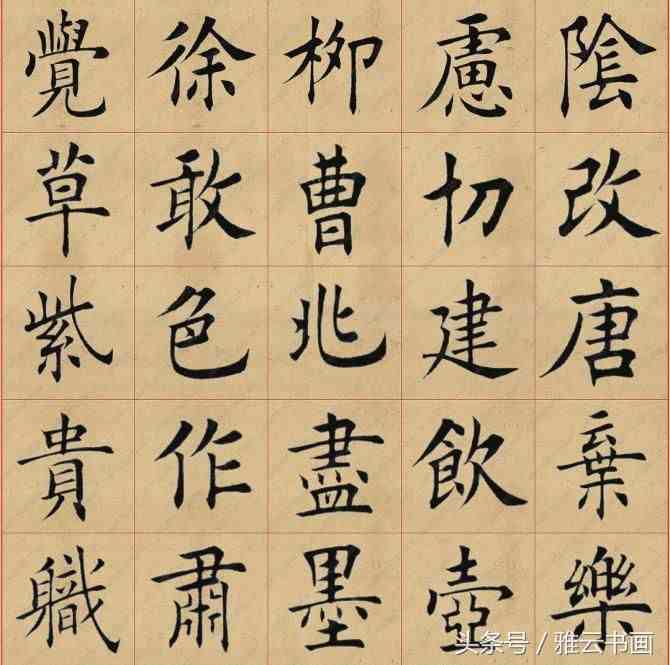 覺徐柳慮陰
草敢曹切改
紫色兆建唐
貴作盡飲棄
軄肅墨壺樂
头条号 / 雅云书画